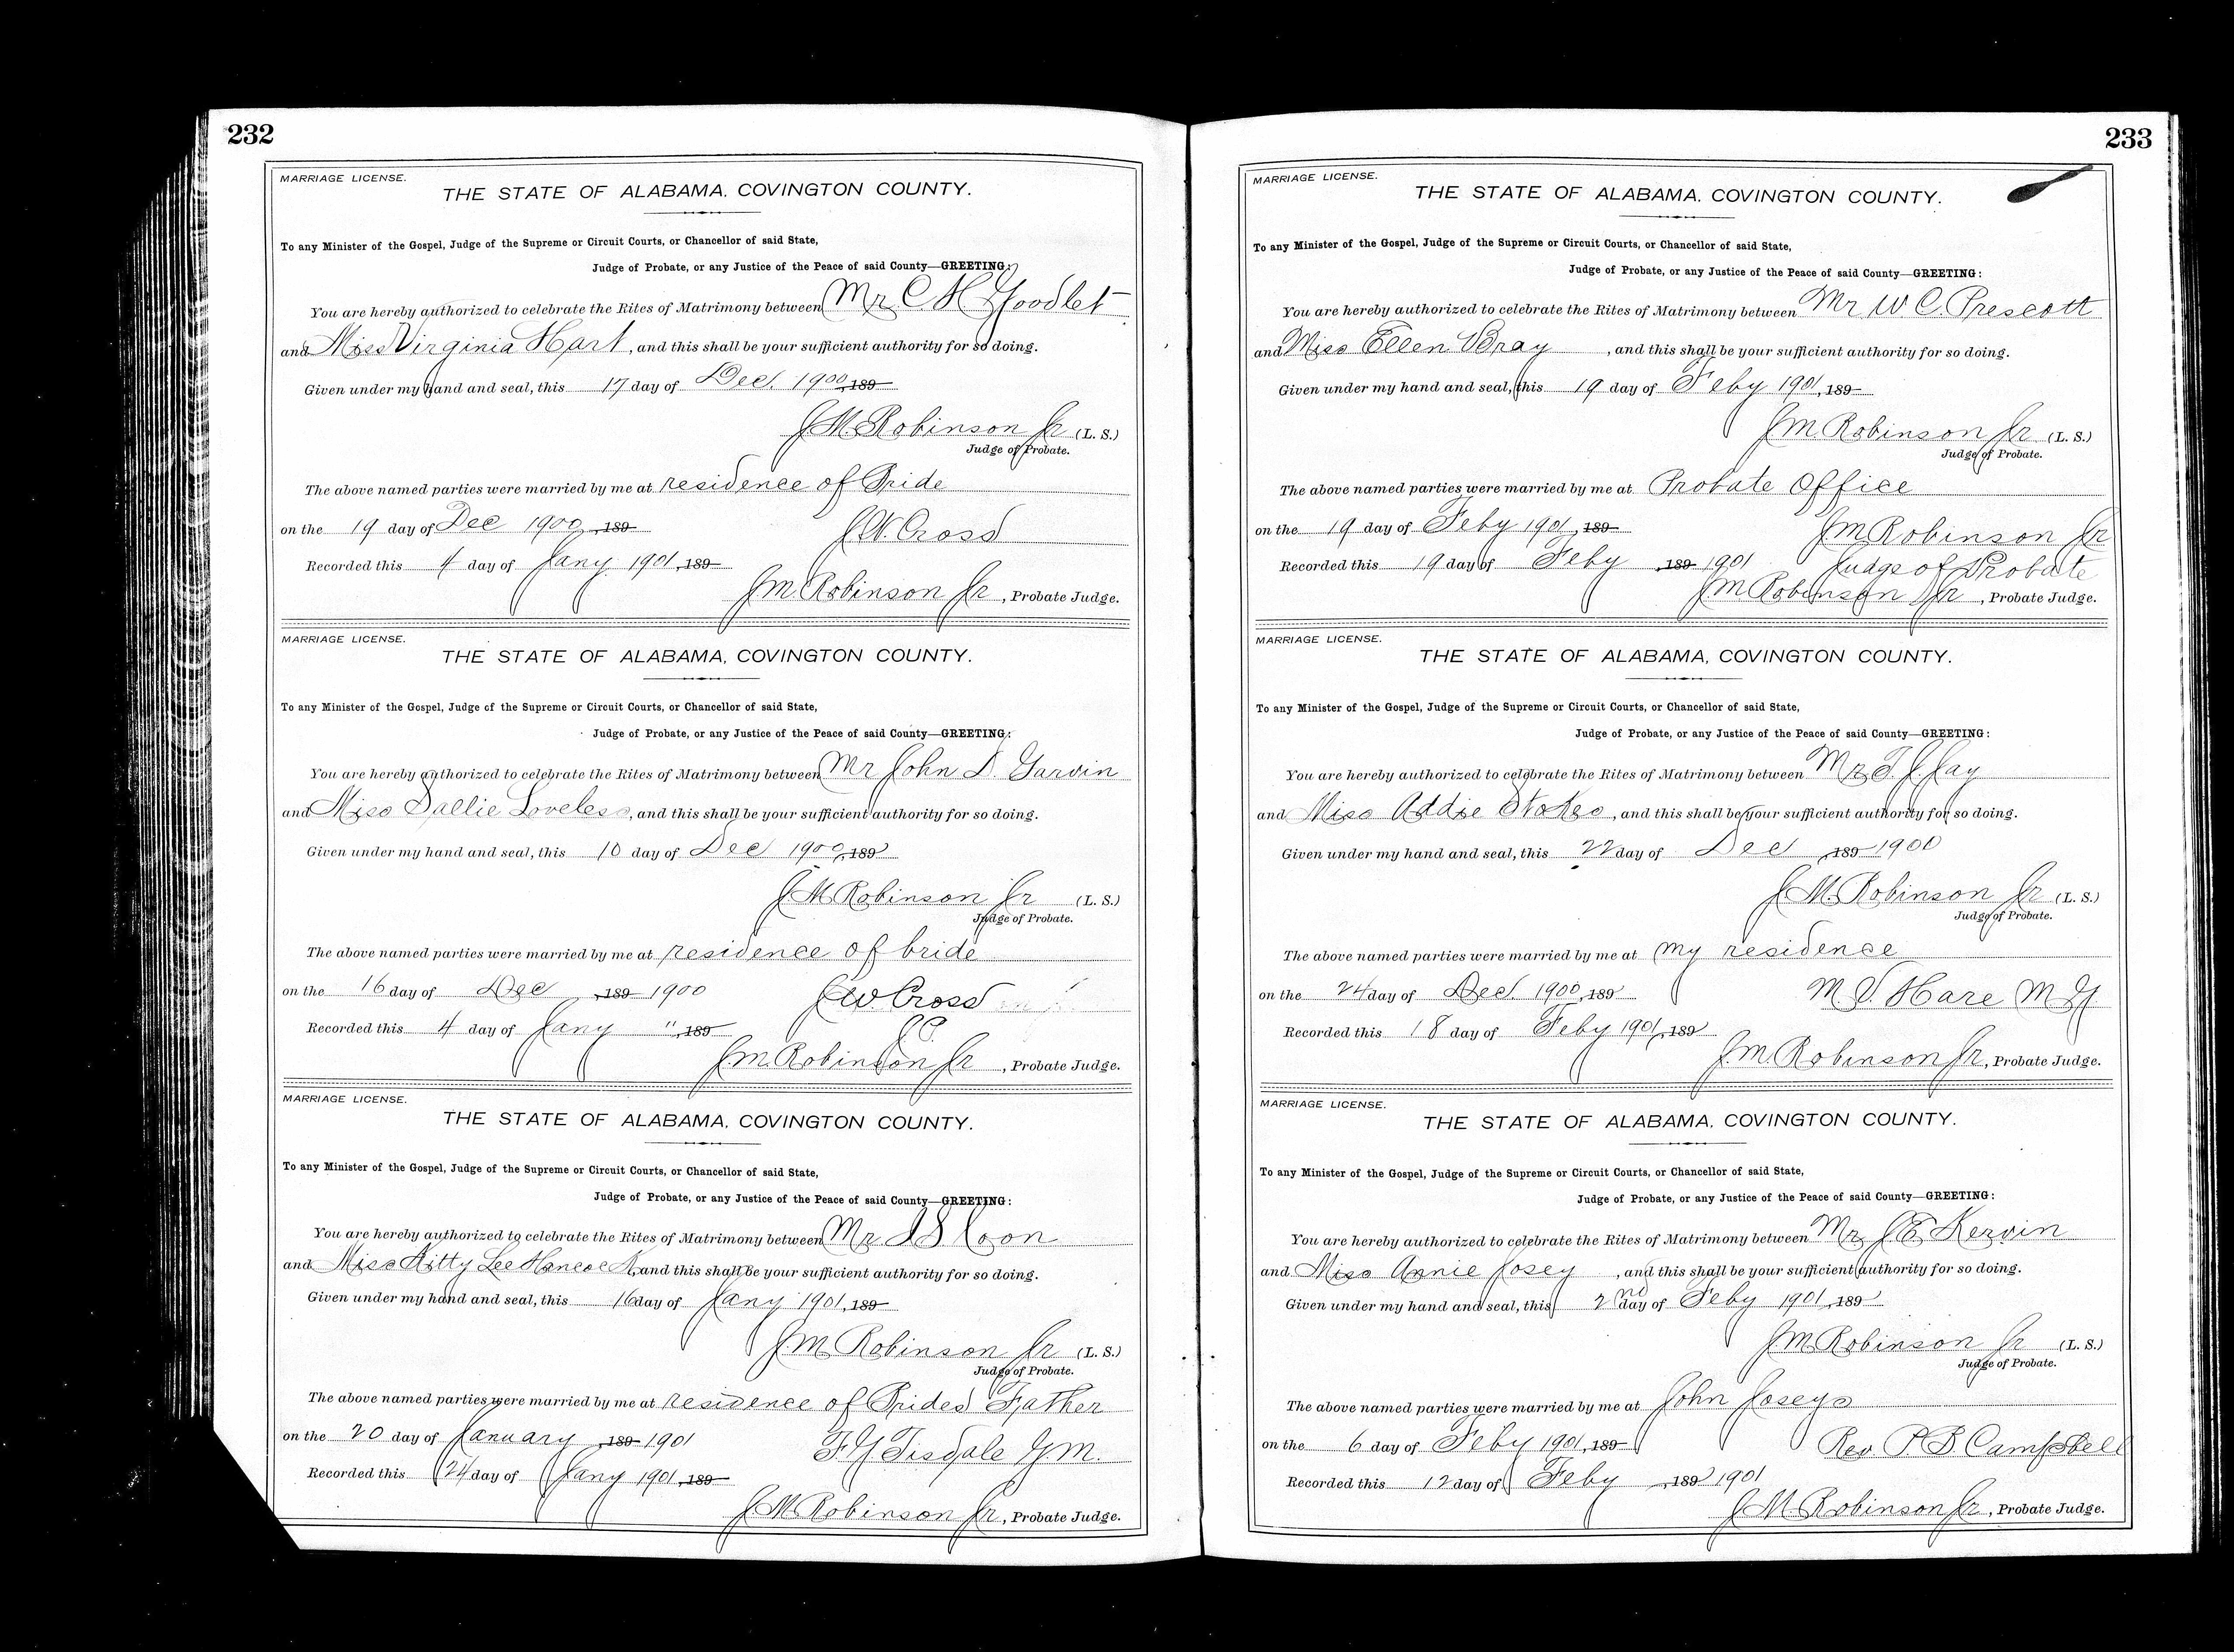 232
MARRIAGE LICENSE.
THE STATE OF ALABAMA, COVINGTON COUNTY.
To any Minister of the Gospel, Judge of the Supreme or Circuit Courts, or Chancellor of said State,
Judge of Probate, or any Justice of the Peace of said County—GREETING:
You are hereby authorized to celebrate the Rites of Matrimony between Mr C H Goodlet
and Miss Virginia Hart, and this shall be your sufficient authority for so doing.
Given under my hand and seal, this 17 day of Dec. 1900, 189
J M Robinson Jr (L. S.)
Judge of Probate.
The above named parties were married by me at residence of Bride
on the 19 day of Dec 1900, 189
J W. Cross
Recorded this 4 day of Jany 1901, 189
J. M. Robinson Jr, Probate Judge.
MARRIAGE LICENSE.
THE STATE OF ALABAMA, COVINGTON COUNTY.
To any Minister of the Gospel, Judge of the Supreme or Circuit Courts, or Chancellor of said State,
Judge of Probate, or any Justice of the Peace of said County—GREETING:
You are hereby authorized to celebrate the Rites of Matrimony between Mr John D. Garvin
and Miss Sallie Loveless, and this shall be your sufficient authority for so doing.
Given under my hand and seal, this 10 day of Dec 1900, 189
J M Robinson Jr (L. S.)
Judge of Probate.
The above named parties were married by me at residence of bride
on the 16 day of Dec , 189 1900
J W. Cross
Recorded this 4 day of Jany ", 189
J.P.
J. M. Robinson Jr, Probate Judge.
MARRIAGE LICENSE.
THE STATE OF ALABAMA, COVINGTON COUNTY.
To any Minister of the Gospel, Judge of the Supreme or Circuit Courts, or Chancellor of said State,
Judge of Probate, or any Justice of the Peace of said County—GREETING:
You are hereby authorized to celebrate the Rites of Matrimony between Mr. Coon
and Miss Kitty Lee Hancock, and this shall be your sufficient authority for so doing.
Given under my hand and seal, this 16 day of Jany 1901, 189
J. M. Robinson Jr (L. S.)
Judge of Probate.
The above named parties were married by me at residence of Brides Father
on the 20 day of January , 189 1901
F. Y. Tisdale G M.
Recorded this 24 day of Jany 1901, 189
J M. Robinson Jr, Probate Judge.
233
MARRIAGE LICENSE.
THE STATE OF ALABAMA, COVINGTON COUNTY.
To any Minister of the Gospel, Judge of the Supreme or Circuit Courts, or Chancellor of said State,
Judge of Probate, or any Justice of the Peace of said County—GREETING:
You are hereby authorized to celebrate the Rites of Matrimony between Mr W. C. Prescott
and Miss Ellen Bray , and this shall be your sufficient authority for so doing.
Given under my hand and seal, this 19 day of Feby 1901, 189
J. M. Robinson Jr (L. S.)
Judge of Probate.
The above named parties were married by me at Probate Office
on the 19 day of Feby 1901, 189
J. M. Robinson Jr
Recorded this 19 day of Feby , 189 1901
Judge of Probate
J. M Robinson Jr , Probate Judge.
MARRIAGE LICENSE.
THE STATE OF ALABAMA, COVINGTON COUNTY.
To any Minister of the Gospel, Judge of the Supreme or Circuit Courts, or Chancellor of said State,
Judge of Probate, or any Justice of the Peace of said County—GREETING:
You are hereby authorized to celebrate the Rites of Matrimony between Mr. J. Jay
and Miss Addie Stokes , and this shall be your sufficient authority for so doing.
Given under my hand and seal, this 22 day of Dec , 189 1900
J M. Robinson Jr (L. S.)
Judge of Probate.
The above named parties were married by me at my residence
on the 24 day of Dec. 1900, 189
M. Hare M G
Recorded this 18 day of Feby 1901, 189
J. M. Robinson Jr, Probate Judge.
MARRIAGE LICENSE.
THE STATE OF ALABAMA, COVINGTON COUNTY.
To any Minister of the Gospel, Judge of the Supreme or Circuit Courts, or Chancellor of said State,
Judge of Probate, or any Justice of the Peace of said County—GREETING:
You are hereby authorized to celebrate the Rites of Matrimony between Mr J. E. Kervin
and Miss Annie Josey , and this shall be your sufficient authority for so doing.
Given under my hand and seal, this 2nd day of Feby 1901, 189
J. M Robinson Jr (L. S.)
Judge of Probate.
The above named parties were married by me at John Joseys
on the 6 day of Feby 1901, 189
Rev. P. B. Campbell
Recorded this 12 day of Feby , 189 1901
J M. Robinson Jr, Probate Judge.